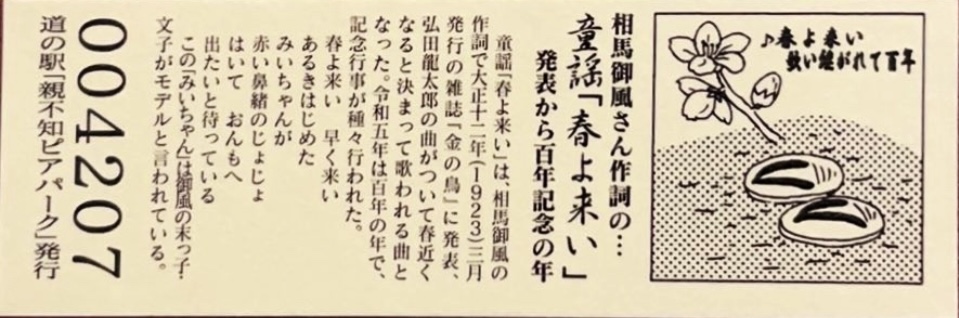 ♪春よ来い
歌い継がれて百年
相馬御風さん作詞の…
童謡「春よ来い」
発表から百年記念の年
童謡「春よ来い」は、相馬御風の
作詞で大正十二年(1923)三月
発行の雑誌『金の鳥』に発表、
弘田龍太郎の曲がついて春近く
なると決まって歌われる曲と
なった。令和五年は百年の年で、
記念行事が種々行われた。
春よ来い　早く来い
あるきはじめた
みいちゃんが
赤い鼻緒のじょじょ
はいて　おんもへ
出たいと待っている
この「みいちゃん」は御風の末っ子・
文子がモデルと言われている。
004207
道の駅「親不知ピアパーク」発行